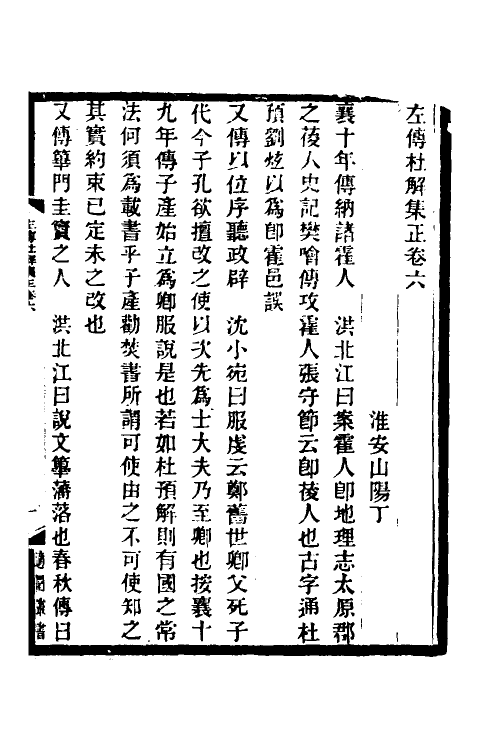 左傳杜解集正卷六
淮安山陽丁
襄十年傳納諸霍人　洪北江曰案霍人卽地理志太原郡
之葰人史記樊噲傳攻霍人張守節云卽葰人也古字通杜
預劉炫以爲卽霍邑誤
又傳以位序聽政辟　沈小宛曰服虔云鄭舊世卿父死子
代今子孔欲擅改之使以次先爲士大夫乃至卿也按襄十
九年傳子產始立爲卿服說是也若如杜預解則有國之常
法何須爲載書乎子產勸焚書所謂可使由之不可使知之
其實約束已定未之改也
又傳篳門圭竇之人　洪北江曰說文篳藩落也春秋傳曰
左傳杜解集正卷六
一
適園叢書